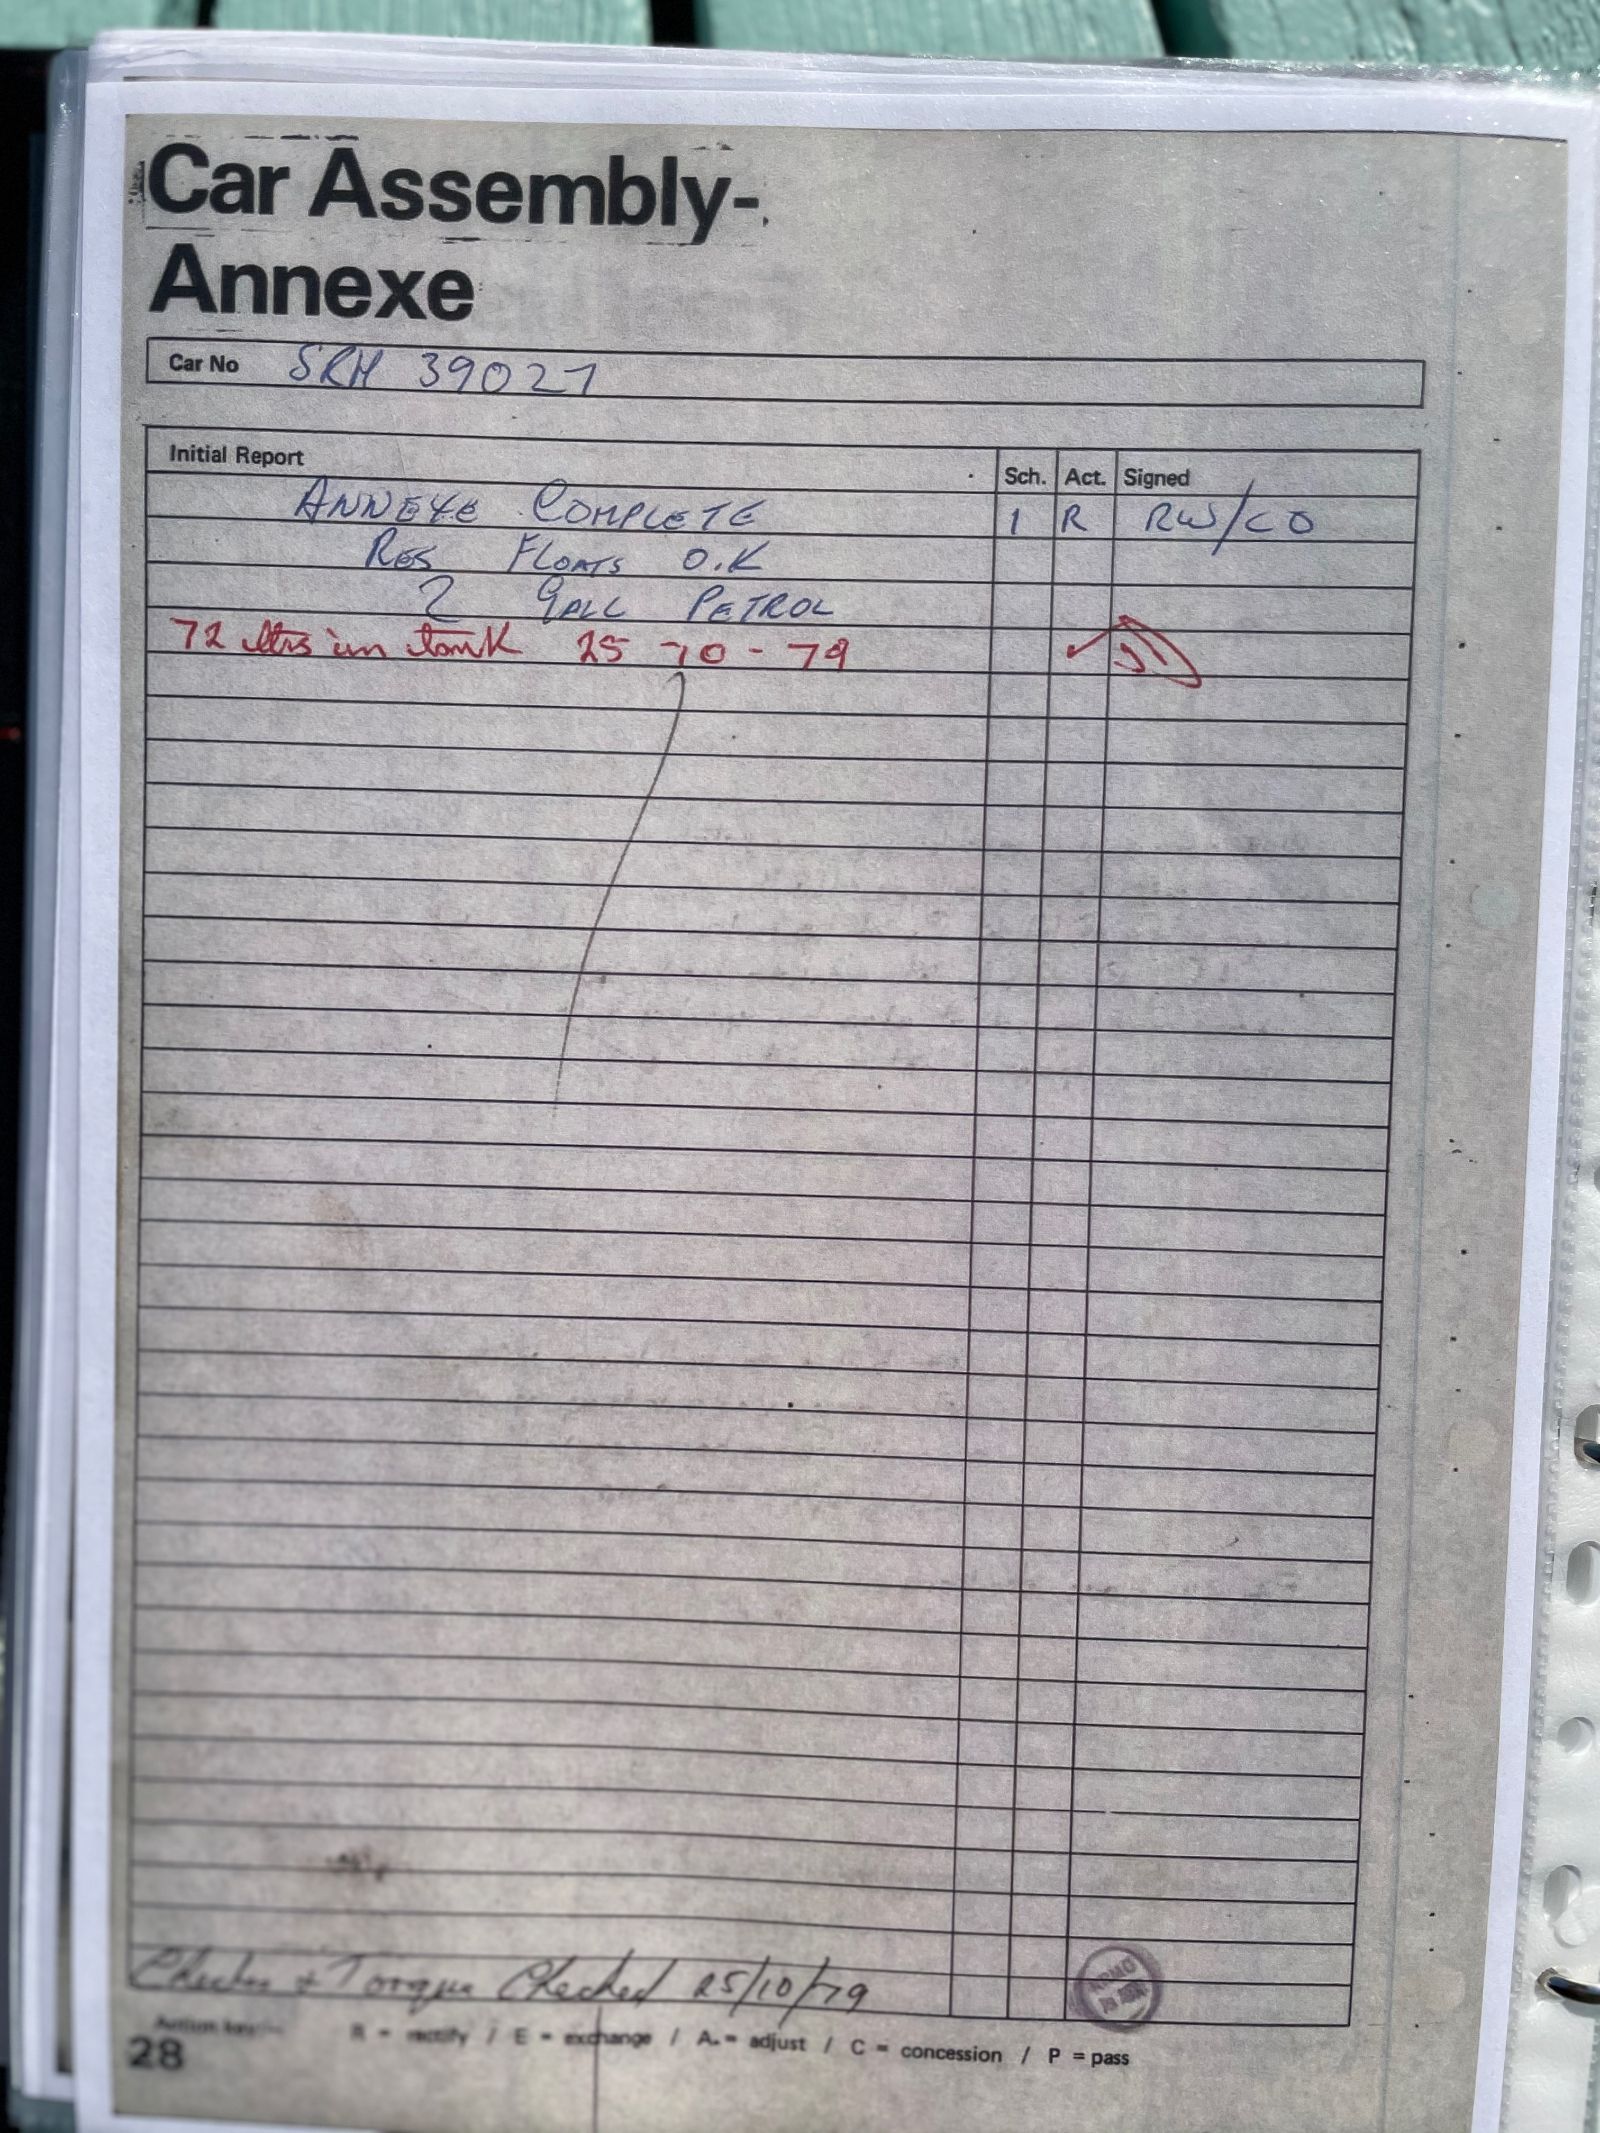 Car Assembly-
Annexe
Car No SRH 39027
Initial Report Sch. Act. Signed
ANNEXE COMPLETE 1 R RW/CO
RES FLOATS O.K
2 GALL PETROL
72 ltrs in tank 25-10-79
Checked + Torque Checked 25/10/79
Action key:
R = rectify / E = exchange / A = adjust / C = concession / P = pass
28